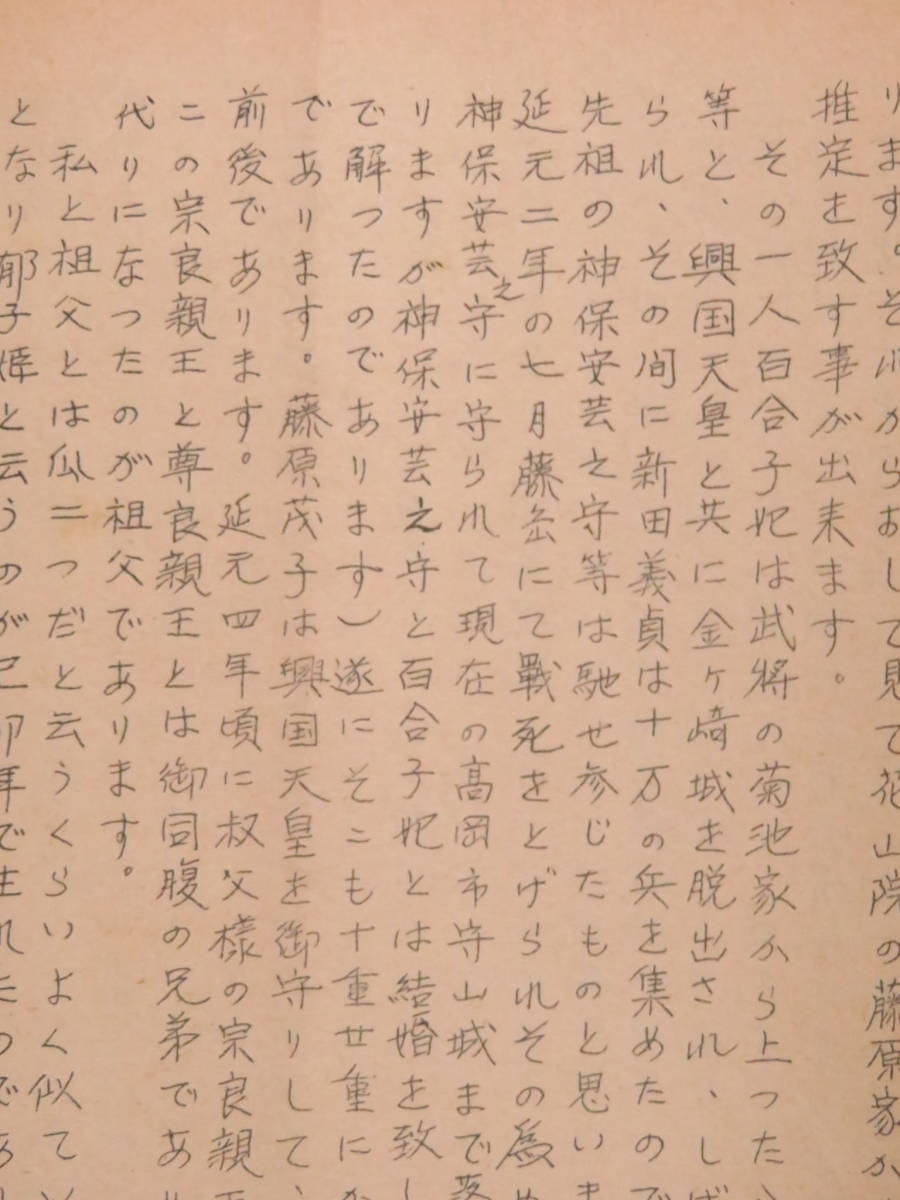 ります。それからおして見て花山院の藤原家か
推定を致す事が出来ます。
その一人百合子妃は武将の菊池家から上った
等と、興国天皇と共に金ヶ崎城を脱出され、しば
られ、その間に新田義貞は十万の兵を集めたので
先祖の神保安芸之守等は馳せ参じたものと思いま
延元二年の七月藤島にて戰死をとげられその為め
神保安芸之守に守られて現在の高岡市守山城まで落
りますが神保安芸之守と百合子妃とは結婚を致し
で解つたのであります)遂にそこも十重廿重にか
であります。藤原茂子は興国天皇を御守りして、
前後であります。延元四年頃に叔父様の宗良親王
この宗良親王と尊良親王とは御同腹の兄弟であり
代りになつたのが祖父であります。
私と祖父とは瓜二つだと云うくらいよく似てい
となり郁子姫と云うのが己卯年で生れたのであ